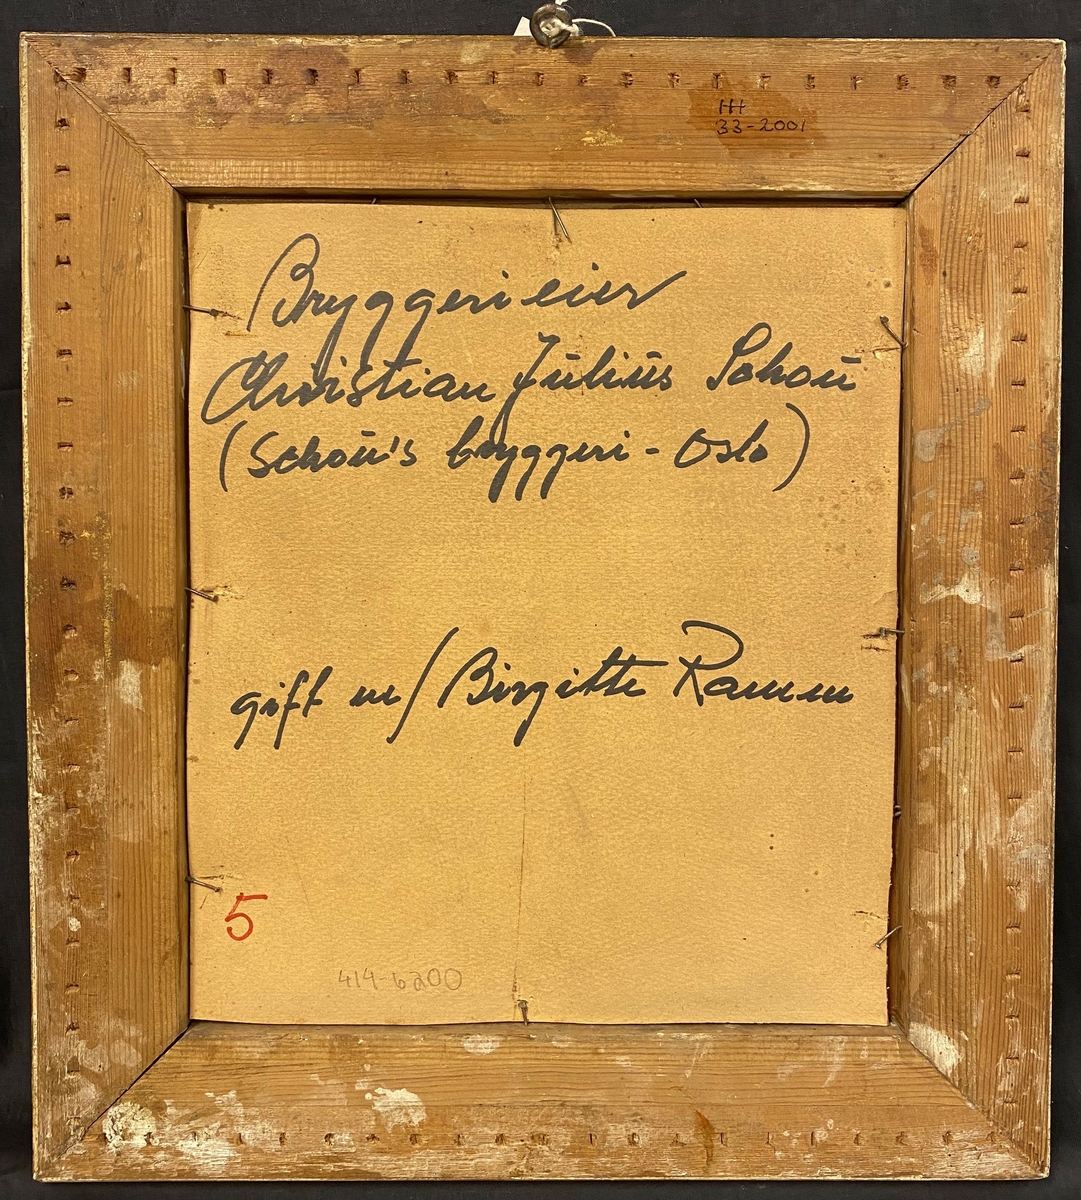 HH
33-2001
Bryggerieier
Christian Julius Schou
(Schou's bryggeri - Oslo)
gift m/ Birgitte Ramm
5
414-6200